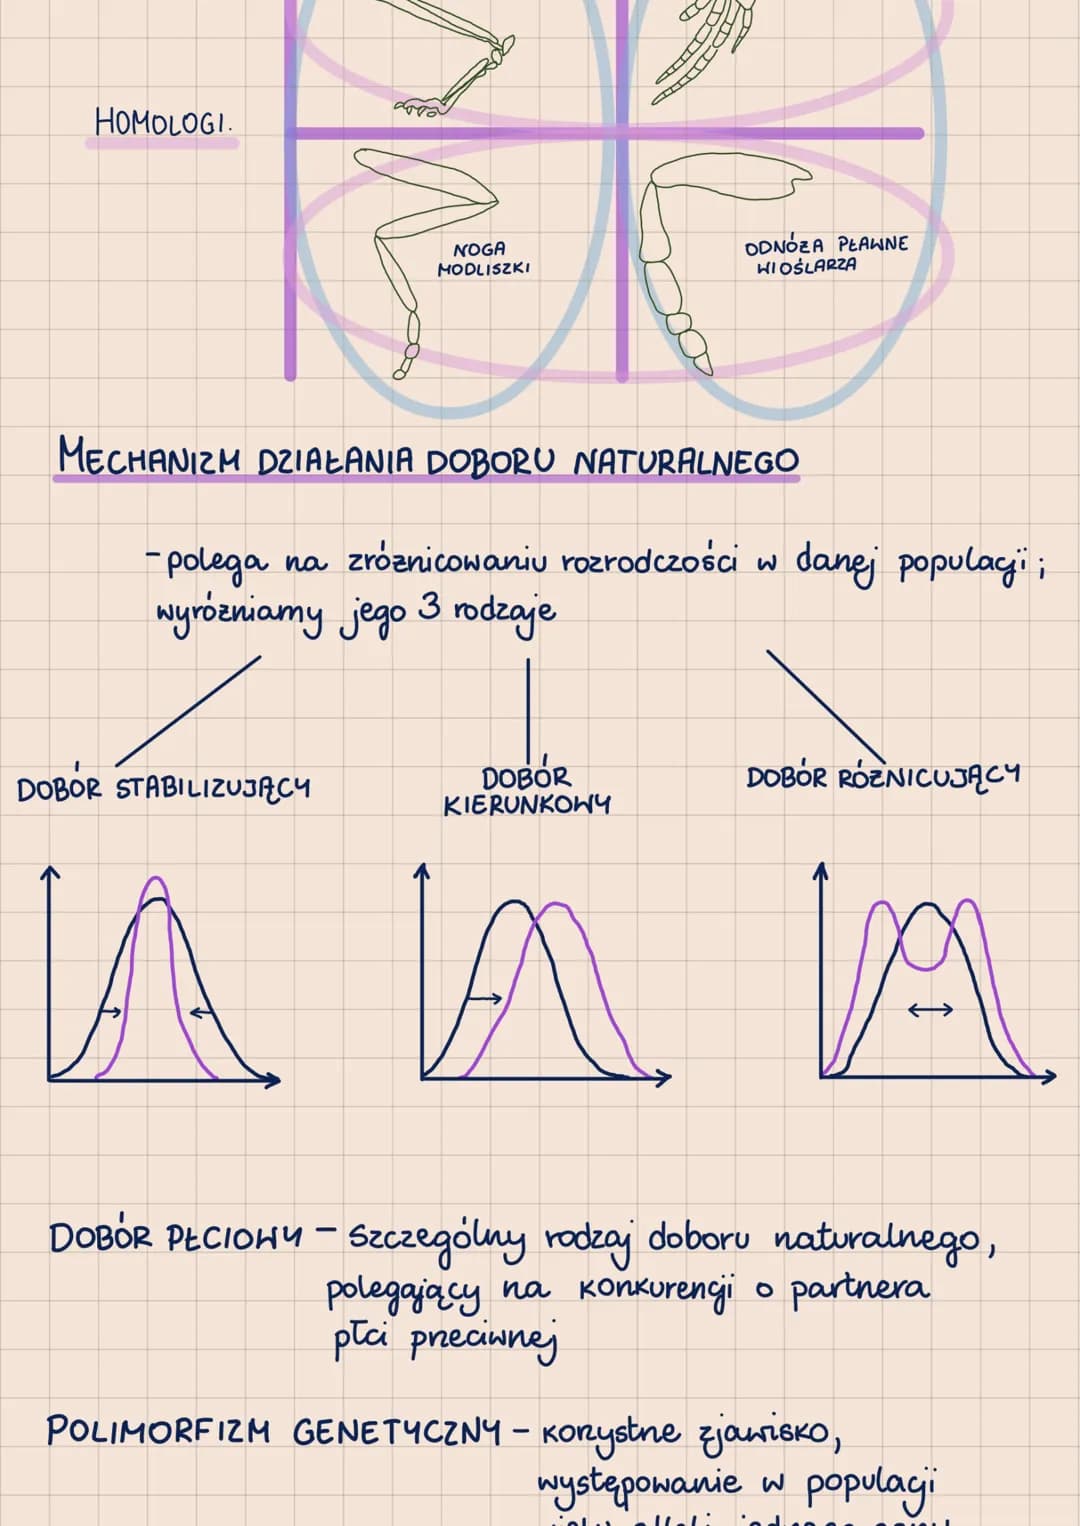 HOMOLOGI.
NOGA
MODLISZKI
ODNÓŻA PŁAWNE
WIOŚLARZA
MECHANIZM DZIAŁANIA DOBORU NATURALNEGO
- polega na zróżnicowaniu rozrodczości w danej populacji;
wyróżniamy jego 3 rodzaje
DOBÓR STABILIZUJĄCY
DOBÓR
KIERUNKOWY
DOBÓR RÓŻNICUJĄCY
DOBÓR PŁCIOWY - szczególny rodzaj doboru naturalnego,
polegający na konkurencji o partnera
płci przeciwnej
POLIMORFIZM GENETYCZNY - korzystne zjawisko,
występowanie w populacji